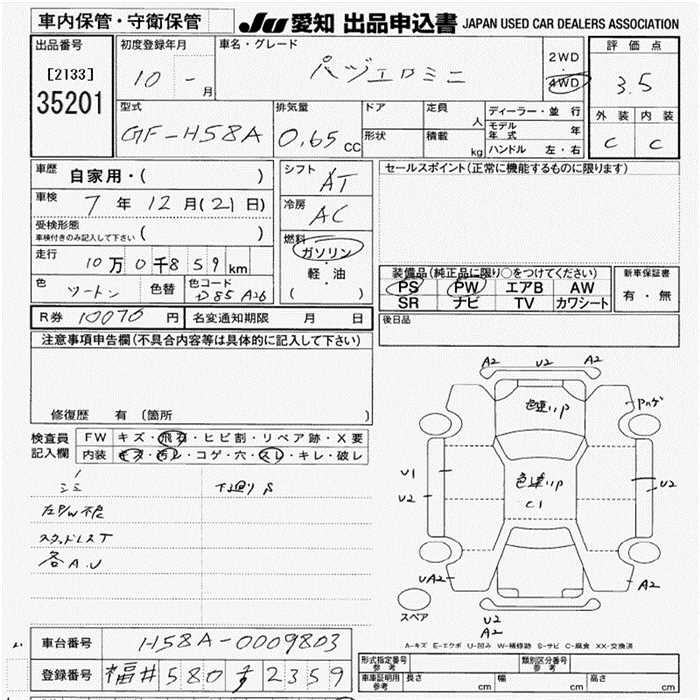 車内保管・守衛保管
JU 愛知 出品申込書 JAPAN USED CAR DEALERS ASSOCIATION
出品番号
[2133]
35201
初度登録年月
10 - 月
車名・グレード
パジェロミニ
2WD
・
4WD
評価点
3.5
外装 内装
C C
型式
GF-H58A
排気量
0.65 CC
ドア
形状
定員 人
積載 kg
ディーラー・並行
モデル年式 年
ハンドル 左・右
車歴
自家用・( )
車検
7年12月(21日)
受検形態
車検付きのみ記入して下さい ( )
走行
10万0千859km
色
ツートン
色替
色コード
D85 A26
シフト
AT
冷房
AC
燃料
ガソリン
・
軽・油
( )
セールスポイント(正常に機能するものに限ります)
装備品(純正品に限り○をつけてください)
PS PW エアB AW
SR ナビ TV カワシート
新車保証書
有・無
R券 10070円 名変通知期限 月 日
後日品
注意事項申告欄(不具合内容等は具体的に記入して下さい)
修復歴 有 (箇所 )
検査員
記入欄
FW キズ・飛石・ヒビ割・リペア跡・X要
内装 キズ・汚レ・コゲ・穴・スレ・キレ・破レ
シミ
下廻りS
左P/W不良
スタッドレスT
各A.U
A2 U2 A2
色違いP
アハゲ
U1
U2
色違いP
C1
U2
UA2
A2
スペア
U2
A2
A-キズ E-エクボ U-凹み W-補修跡 S-サビ C-腐食 XX-交換済
車台番号
H58A-0009803
登録番号
福井580す2359
形式指定番号
参考
類別区分番号
参考
車庫証明用
参考
長さ cm 幅 cm 高さ cm